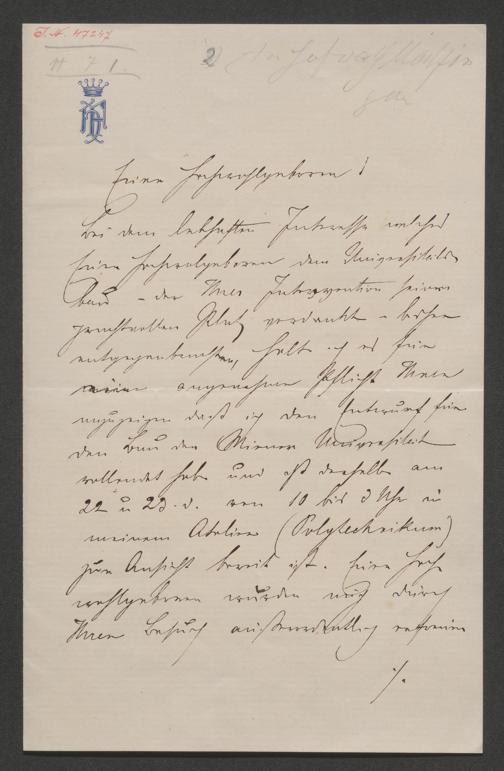 J.N. 47247
2) An Hofrath
Euer Hochwohlgeboren!
Bei dem lebhaften Interesse welches
Euer Hochwolgeboren dem Universitäts-
bau – der Ihrer Intervention seinen
prachtvollen Platz verdankt – bisher
entgegenbrachten, halte ich es für
meine angenehme Pflicht Ihnen
anzuzeigen daß ich den Entwurf für
den Bau der Wiener Universität
vollendet habe und ist derselbe am
22 u 23. d. von 10 bis 3 Uhr in
meinem Atelier (Polytechnikum)
zur Ansicht bereit ist. Euer Hoch
wohlgeboren würden mich durch
Ihren Besuch außerordentlich erfreuen
./.